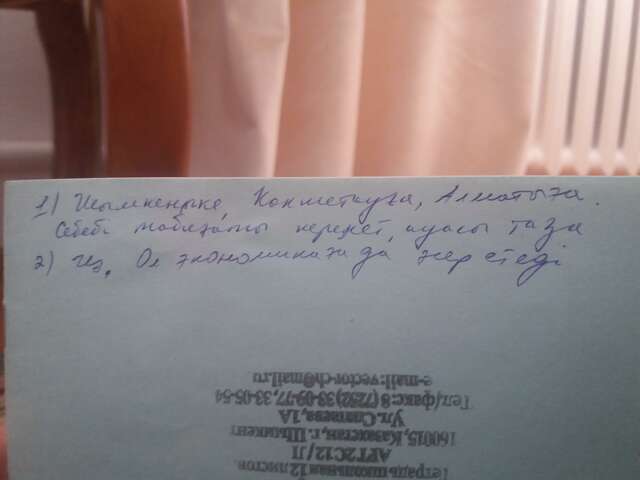 1) Шымкентке, Кокшетауға, Алматыға.
Себебі табиғаты керемет, ауасы таза
2) Иә, Ол экономикаға да әсер етеді
e-mail: vector-ch@mail.ru
Тел/факс: 8 (7252) 33-09-77, 33-05-54
Ул. Сапаева, 1А
160015, Казахстан, г. Шымкент
АРТ2С12/Л
Тетрадь школьная 12 листов